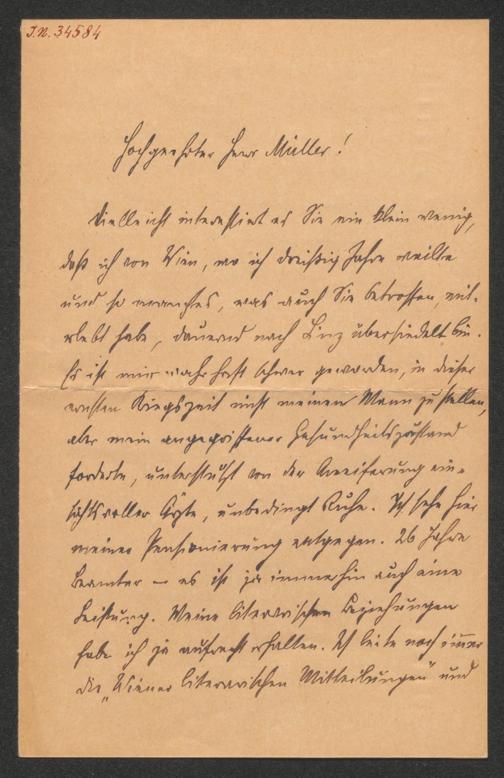 J.N. 34584
Hochgeehrter Herr Müller!
Vielleicht interessiert es Sie ein klein wenig,
daß ich von Wien, wo ich dreißig Jahre weilte
und so manches, was auch Sie betroffen, mit-
erlebt habe, dauernd nach Linz übersiedelt bin.
Es ist mir wahrhaft schwer geworden, in dieser
ernsten Kriegszeit nicht meinen Mann zu stellen,
aber mein angegriffener Gesundheitszustand
forderte, unterstützt von der Aneiferung ein-
sichtsvoller Ärzte, unbedingt Ruhe. Ich sehe hier
meiner Pensionierung entgegen. 26 Jahre
Beamter – es ist ja immerhin auch eine
Leistung. Meine literarischen Beziehungen
habe ich ja aufrecht erhalten. Ich leite noch immer
die „Wiener literarischen Mitteilungen" und